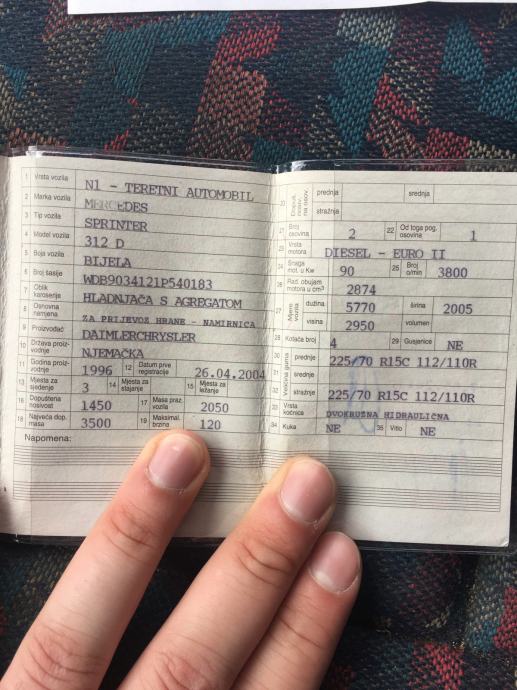 1 Vrsta vozila N1 - TERETNI AUTOMOBIL
2 Marka vozila MERCEDES
3 Tip vozila SPRINTER
4 Model vozila 312 D
5 Boja vozila BIJELA
6 Broj šasije WDB9034121P540183
7 Oblik karoserije HLADNJAČA S AGREGATOM
8 Osnovna namjena ZA PRIJEVOZ HRANE - NAMIRNICA
9 Proizvođač DAIMLERCHRYSLER
10 Država proiz-vodnje NJEMAČKA
11 Godina proiz-vodnje 1996 12 Datum prve registracije 26.04.2004
13 Mjesta za sjedenje 3 14 Mjesta za stajanje 15 Mjesta za ležanje
16 Dopuštena nosivost 1450 17 Masa praz. vozila 2050
18 Najveća dop. masa 3500 19 Maksimal. brzina 120
Napomena:
20 Dopuš. osov. na osov. prednja srednja
stražnja
21 Broj osovina 2 22 Od toga pog. osovina 1
23 Vrsta motora DIESEL - EURO II
24 Snaga mot. u Kw 90 25 Broj o/min 3800
26 Rad. obujam motora u cm³ 2874
27 Mjere vozila dužina 5770 širina 2005
visina 2950 volumen
28 Kotača broj 4 29 Gusjenice NE
Veličina guma 30 prednje 225/70 R15C 112/110R
31 srednje
32 stražnje 225/70 R15C 112/110R
33 Vrsta kočnica DVOKRUŽNA HIDRAULIČNA
34 Kuka NE 35 Vitlo NE